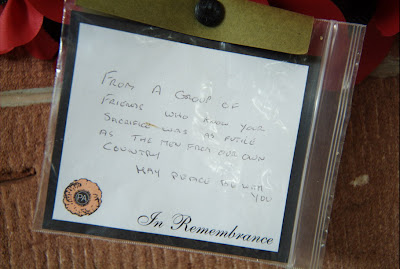 FROM A GROUP OF
FRIENDS WHO KNOW YOUR
SACRIFICE WAS AS FUTILE
AS THE MEN FROM OUR OWN
COUNTRY
MAY PEACE BE WITH
YOU
PA
In Remembrance